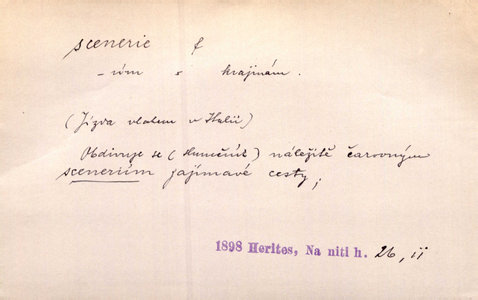 scenerie f
– iím s krajinám.
(Jízda vlakem v Italii)
Obdivuje se ( ) náležitě čarovným
sceneriím zajímavé cesty;
1898 Herites, Na niti h. 26, ii